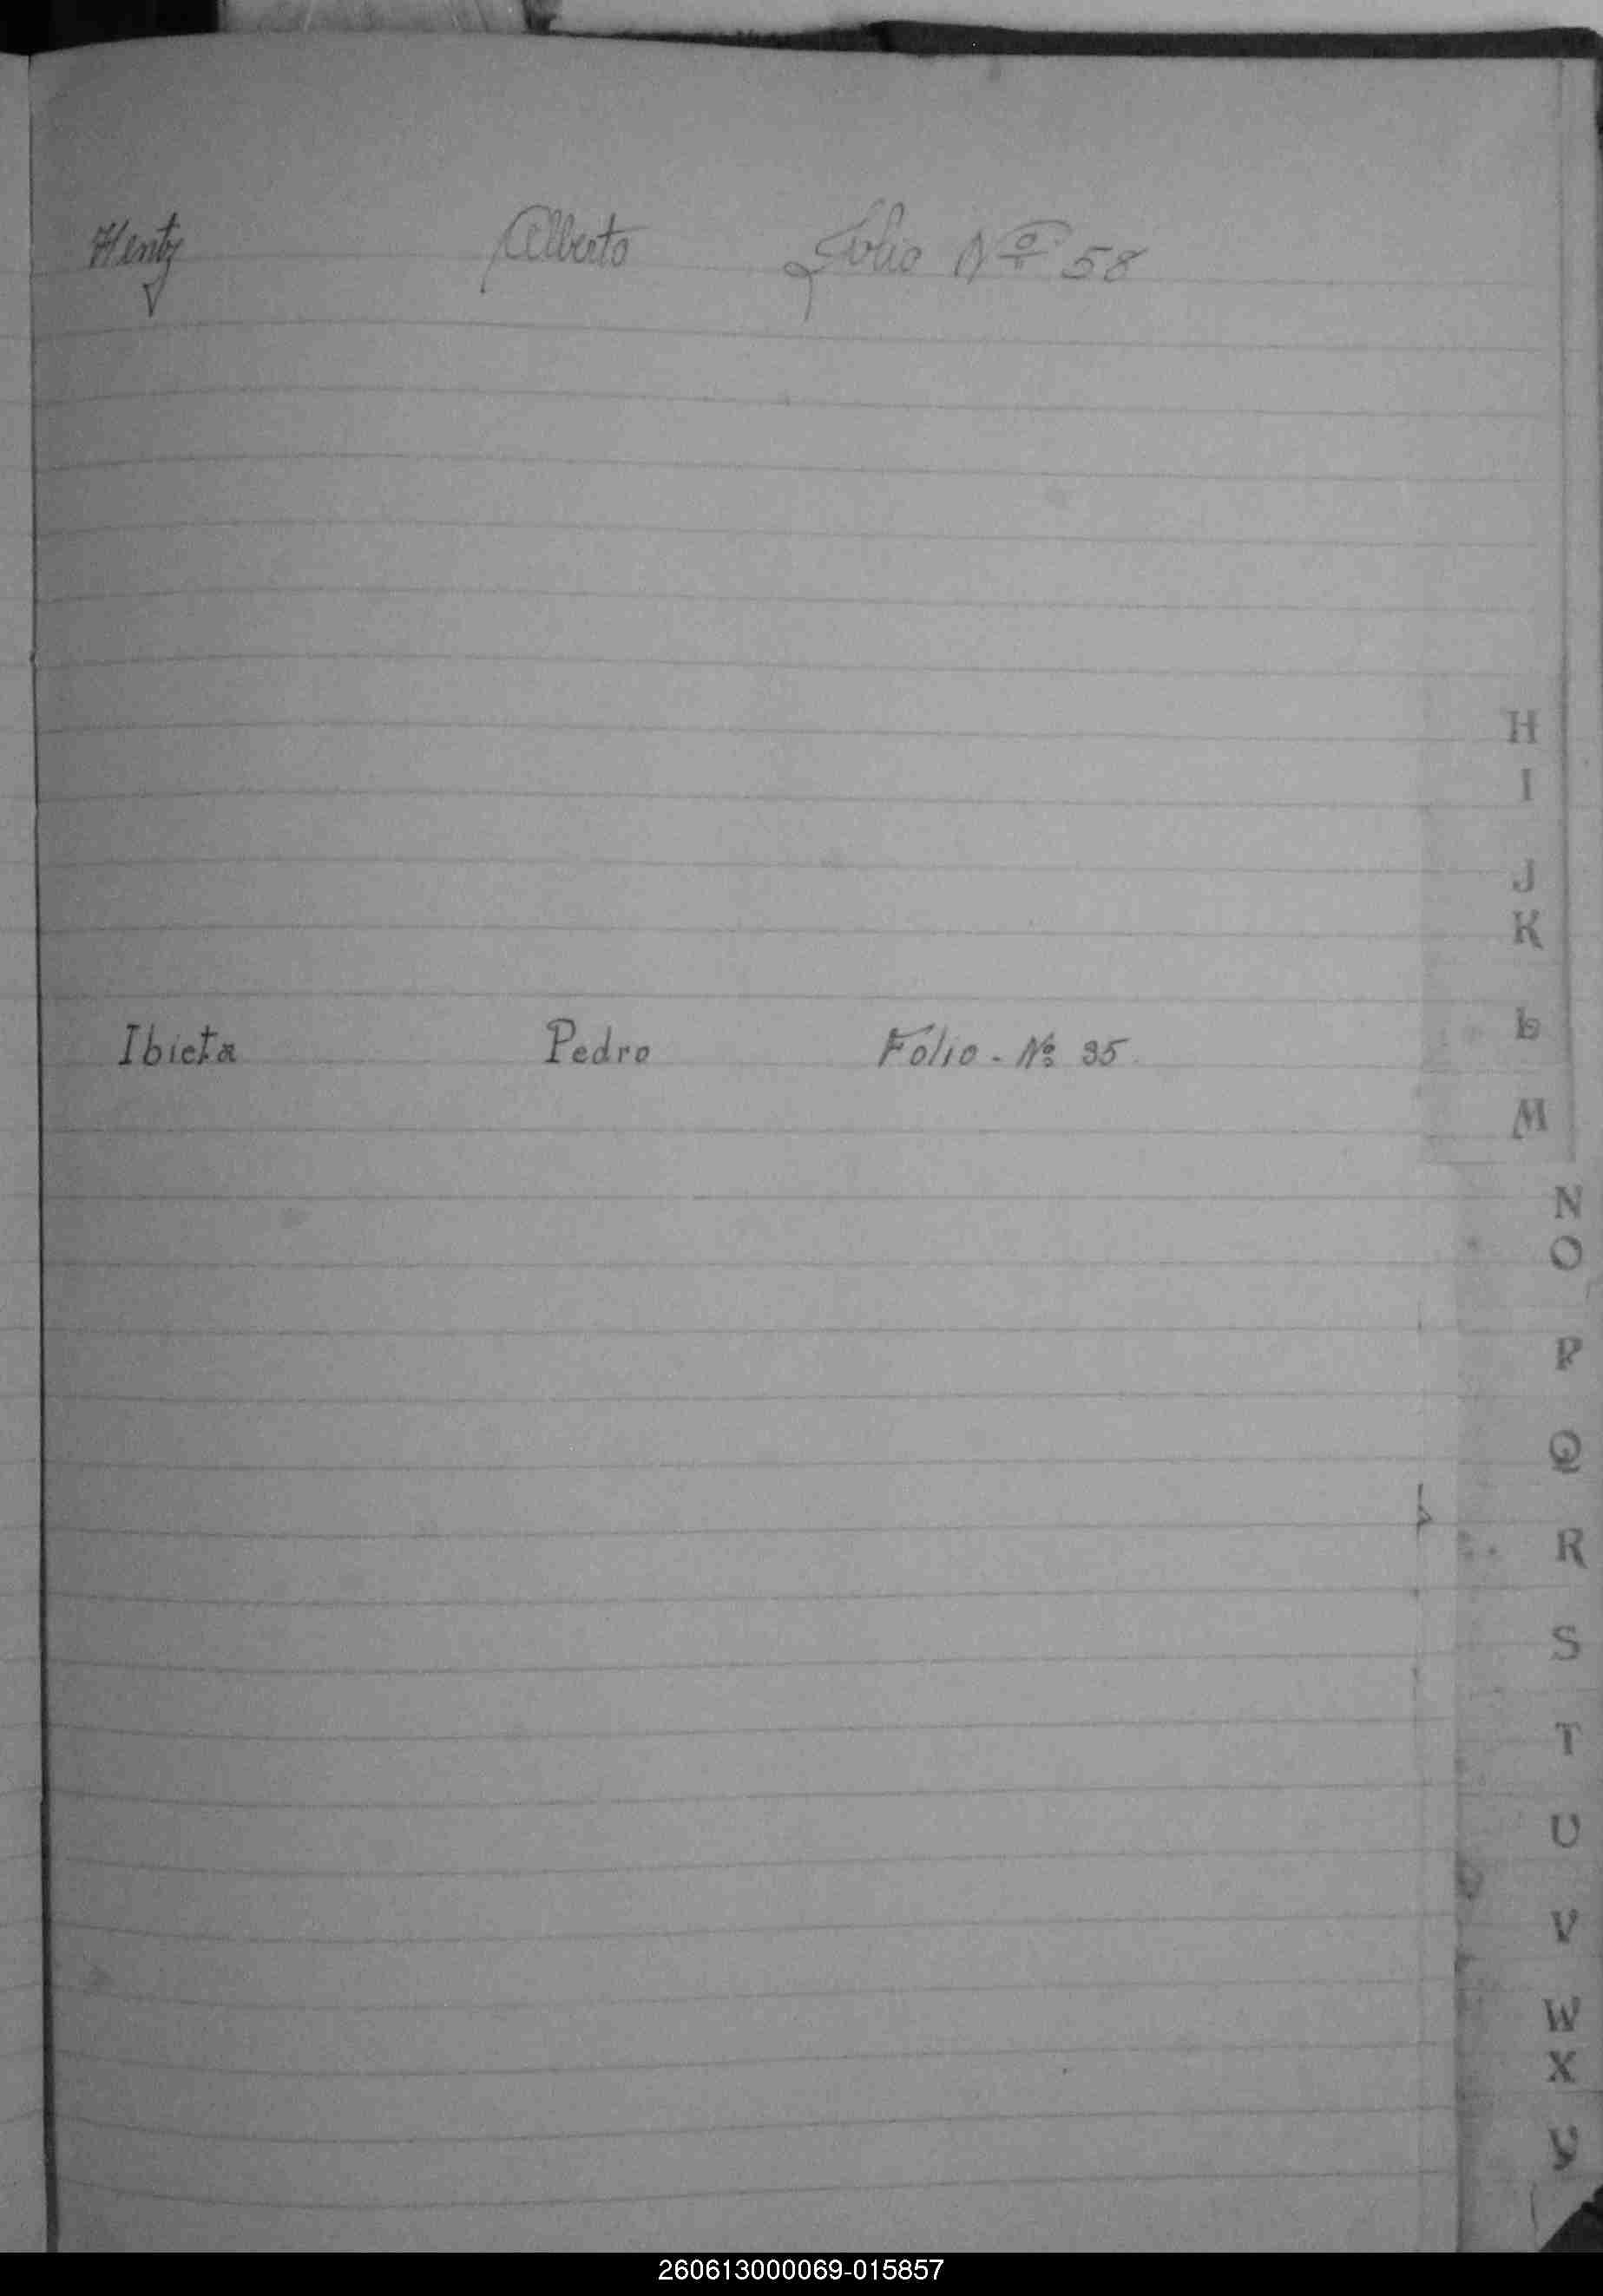 Hentz Alberto Folio Nº 58
H
I
J
K
Ibieta Pedro Folio - Nº 35
L
M
N
O
P
Q
R
S
T
U
V
W
X
Y
260613000069-015857